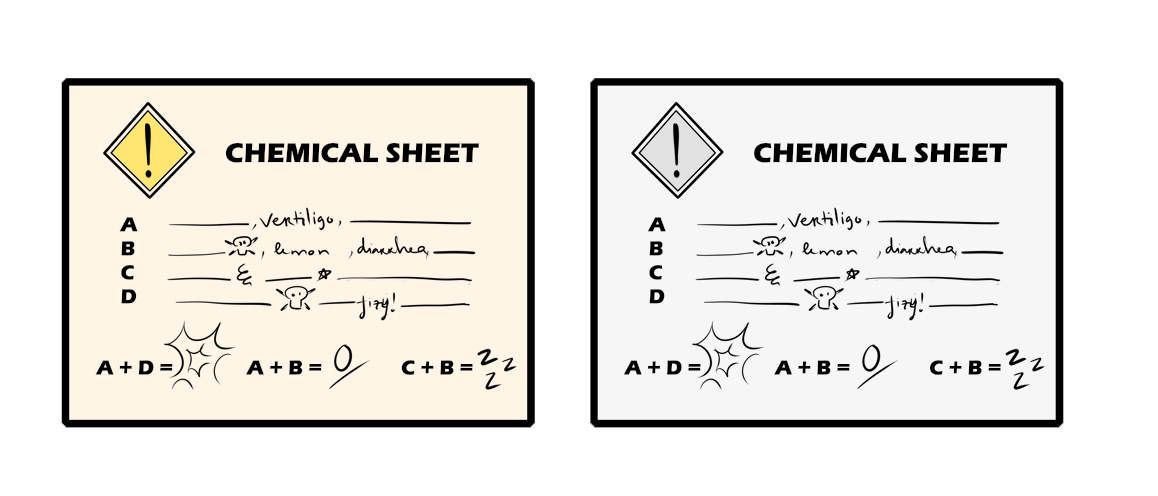 !
CHEMICAL SHEET
A , vertiligo,
B , lemon , diarrhea,
C
D fizy!
A + D = A + B = 0 C + B = z z z
!
CHEMICAL SHEET
A , vertiligo,
B , lemon , diarrhea,
C
D fizy!
A + D = A + B = 0 C + B = z z z